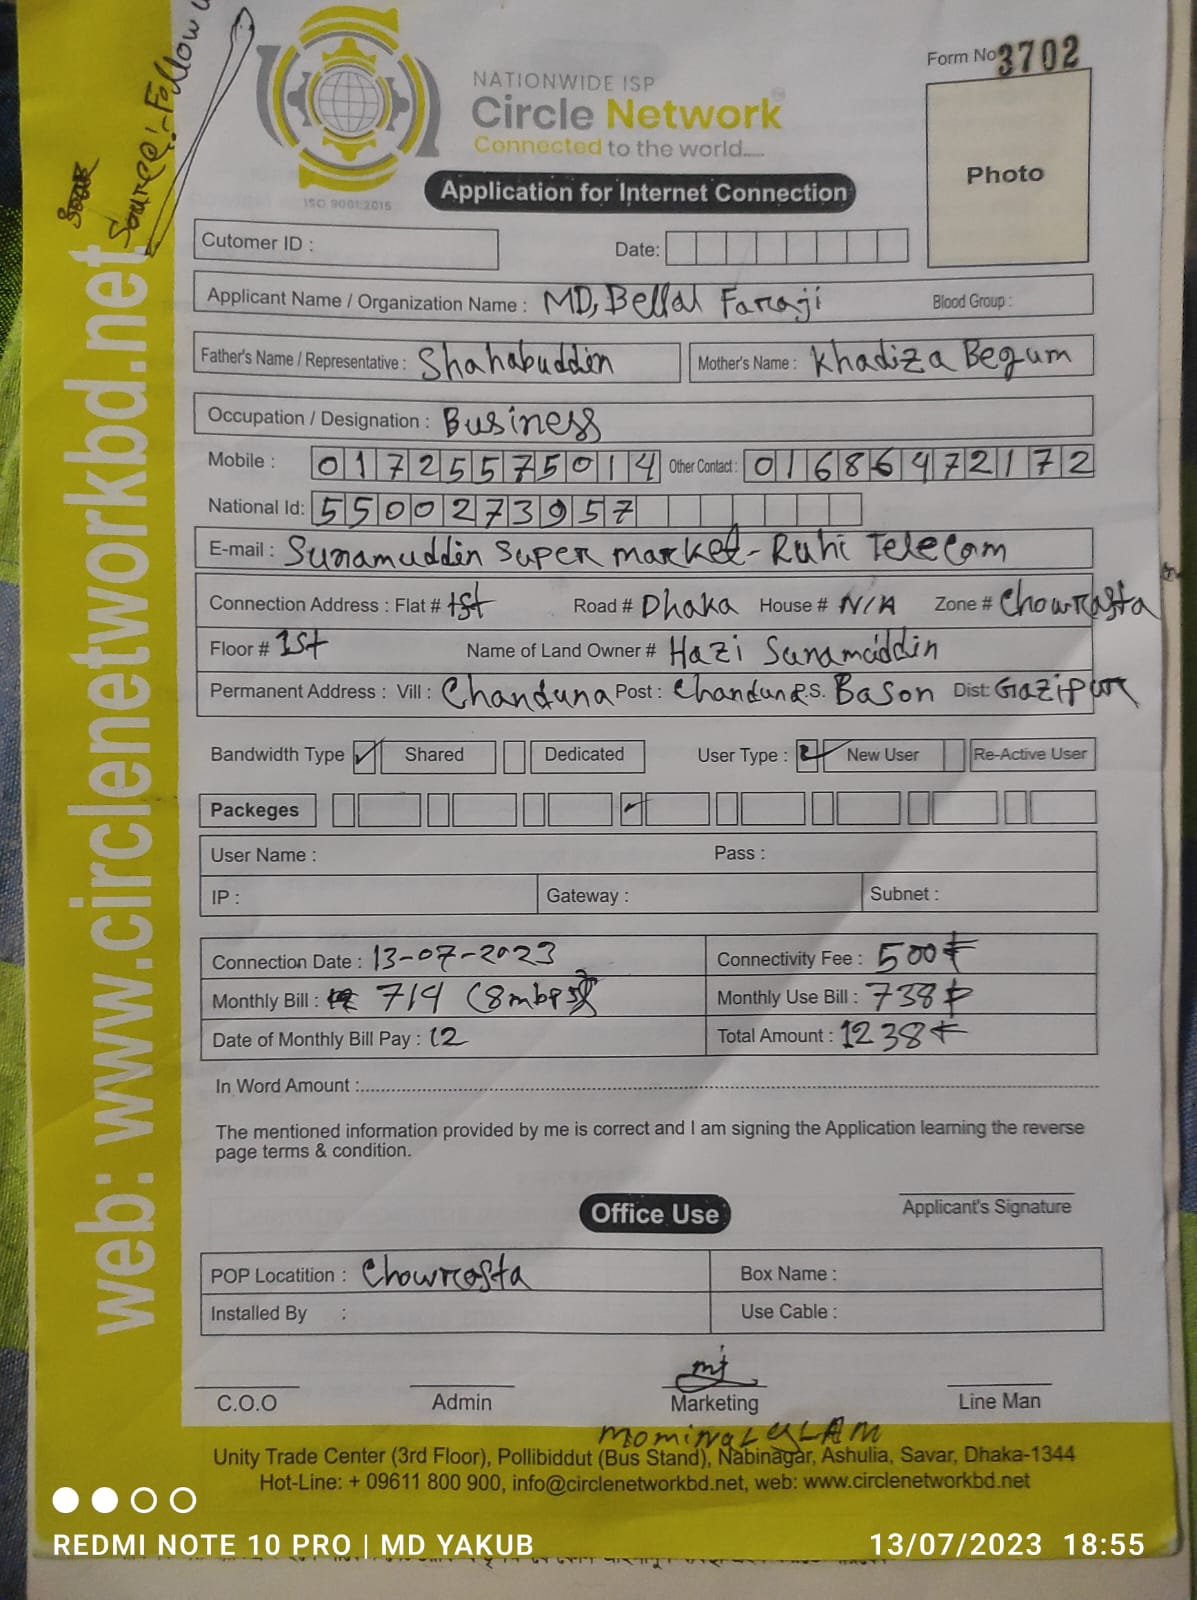 Source:- Follow
Form No 3702
NATIONWIDE ISP
Circle Network
Connected to the world.....
ISO 9001:2015
Photo
Application for Internet Connection
Cutomer ID :
Date:
Applicant Name / Organization Name : MD, Bellal Faraji Blood Group :
Father's Name / Representative : Shahabuddin Mother's Name : Khadiza Begum
Occupation / Designation : Business
Mobile : 01725575014 Other Contact : 01686472172
National Id: 5500273957
E-mail : Sunamuddin Super market - Ruhi Telecom
Connection Address : Flat # 1st Road # Dhaka House # N/A Zone # Chowrasta
Floor # 1st Name of Land Owner # Hazi Sunamuddin
Permanent Address : Vill : Chanduna Post : Chanduna P.S. Bason Dist: Gazipur
Bandwidth Type Shared Dedicated User Type : New User Re-Active User
Packeges
User Name : Pass :
IP : Gateway : Subnet :
Connection Date : 13-07-2023 Connectivity Fee : 500৳
Monthly Bill : 714 (8mbps) Monthly Use Bill : 738৳
Date of Monthly Bill Pay : 12 Total Amount : 1238৳
In Word Amount :
The mentioned information provided by me is correct and I am signing the Application learning the reverse
page terms & condition.
Applicant's Signature
Office Use
POP Locatition : Chowrasta Box Name :
Installed By : Use Cable :
C.O.O Admin Marketing Line Man
Unity Trade Center (3rd Floor), Pollibiddut (Bus Stand), Nabinagar, Ashulia, Savar, Dhaka-1344
Hot-Line: + 09611 800 900, info@circlenetworkbd.net, web: www.circlenetworkbd.net
web: www.circlenetworkbd.net
REDMI NOTE 10 PRO | MD YAKUB
13/07/2023 18:55